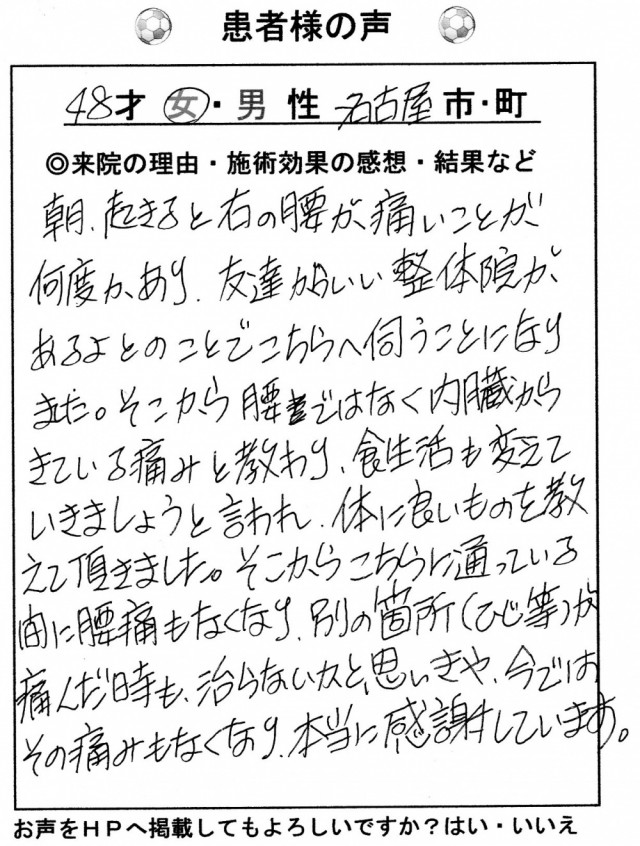 患者様の声
48才 女・男 性 名古屋 市・町
◎来院の理由・施術効果の感想・結果など
朝、起きると右の腰が痛いことが
何度かあり、友達からいい整体院が
あるよとのことでこちらへ伺うことになり
ました。そこから腰ではなく内臓から
きている痛みと教わり、食生活も変えて
いきましょうと言われ、体に良いものを教
えて頂きました。そこからこちらに通っている
間に腰痛もなくなり、別の箇所(ひじ等)が
痛んだ時も、治らないかと思いきや、今では
その痛みもなくなり、本当に感謝しています。
お声をHPへ掲載してもよろしいですか?はい・いいえ